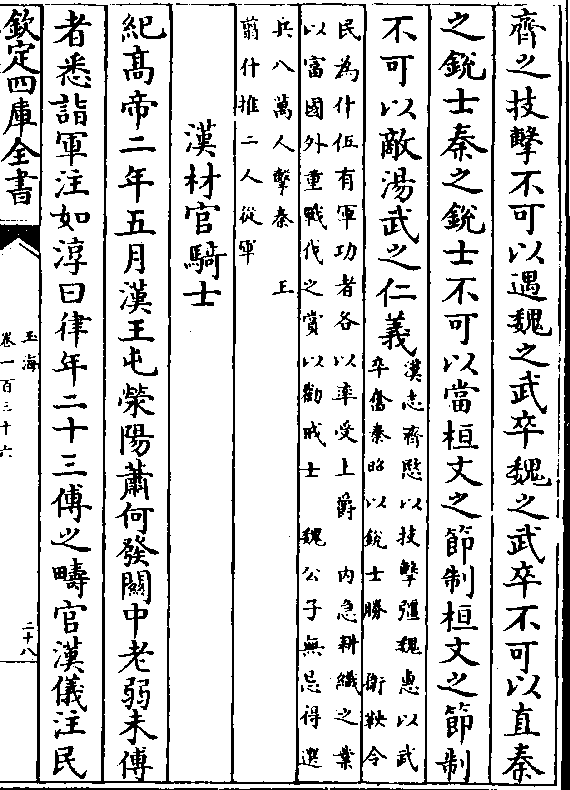 齊之技擊不可以遇魏之武卒魏之武卒不可以直秦
之銳士秦之銳士不可以當桓文之節制桓文之節制
不可以敵湯武之仁義
漢志齊愍以技擊彊魏惠以武
卒奮秦昭以銳士勝 衛鞅令
民為什伍有軍功者各以率受上爵 内急耕織之業
以富國外重戰伐之賞以勸戎士 魏公子無忌得選
兵八萬人擊秦 王
翦什推二人從軍
漢材官騎士
紀髙帝二年五月漢王屯滎陽蕭何發闗中老弱未傅
者悉詣軍注如淳曰律年二十三傅之疇官漢儀注民
欽定四庫全書
玉海
卷一百三十六
二十八